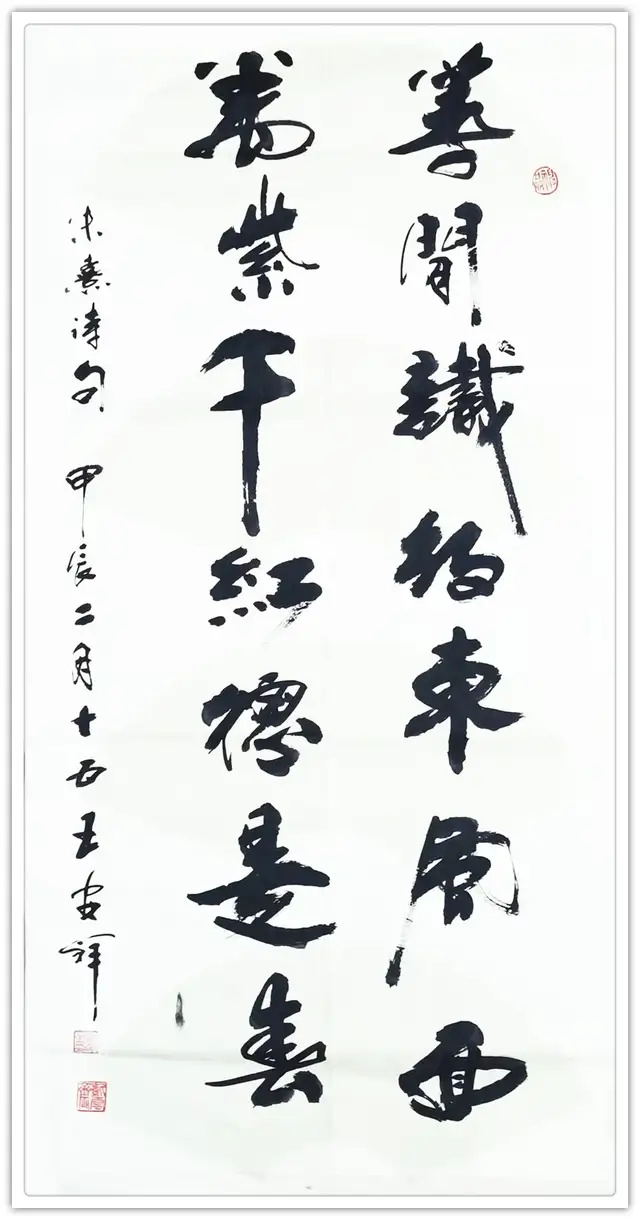 等閒識得東風面
萬紫千紅總是春
朱熹诗句 甲辰二月十五 王祥